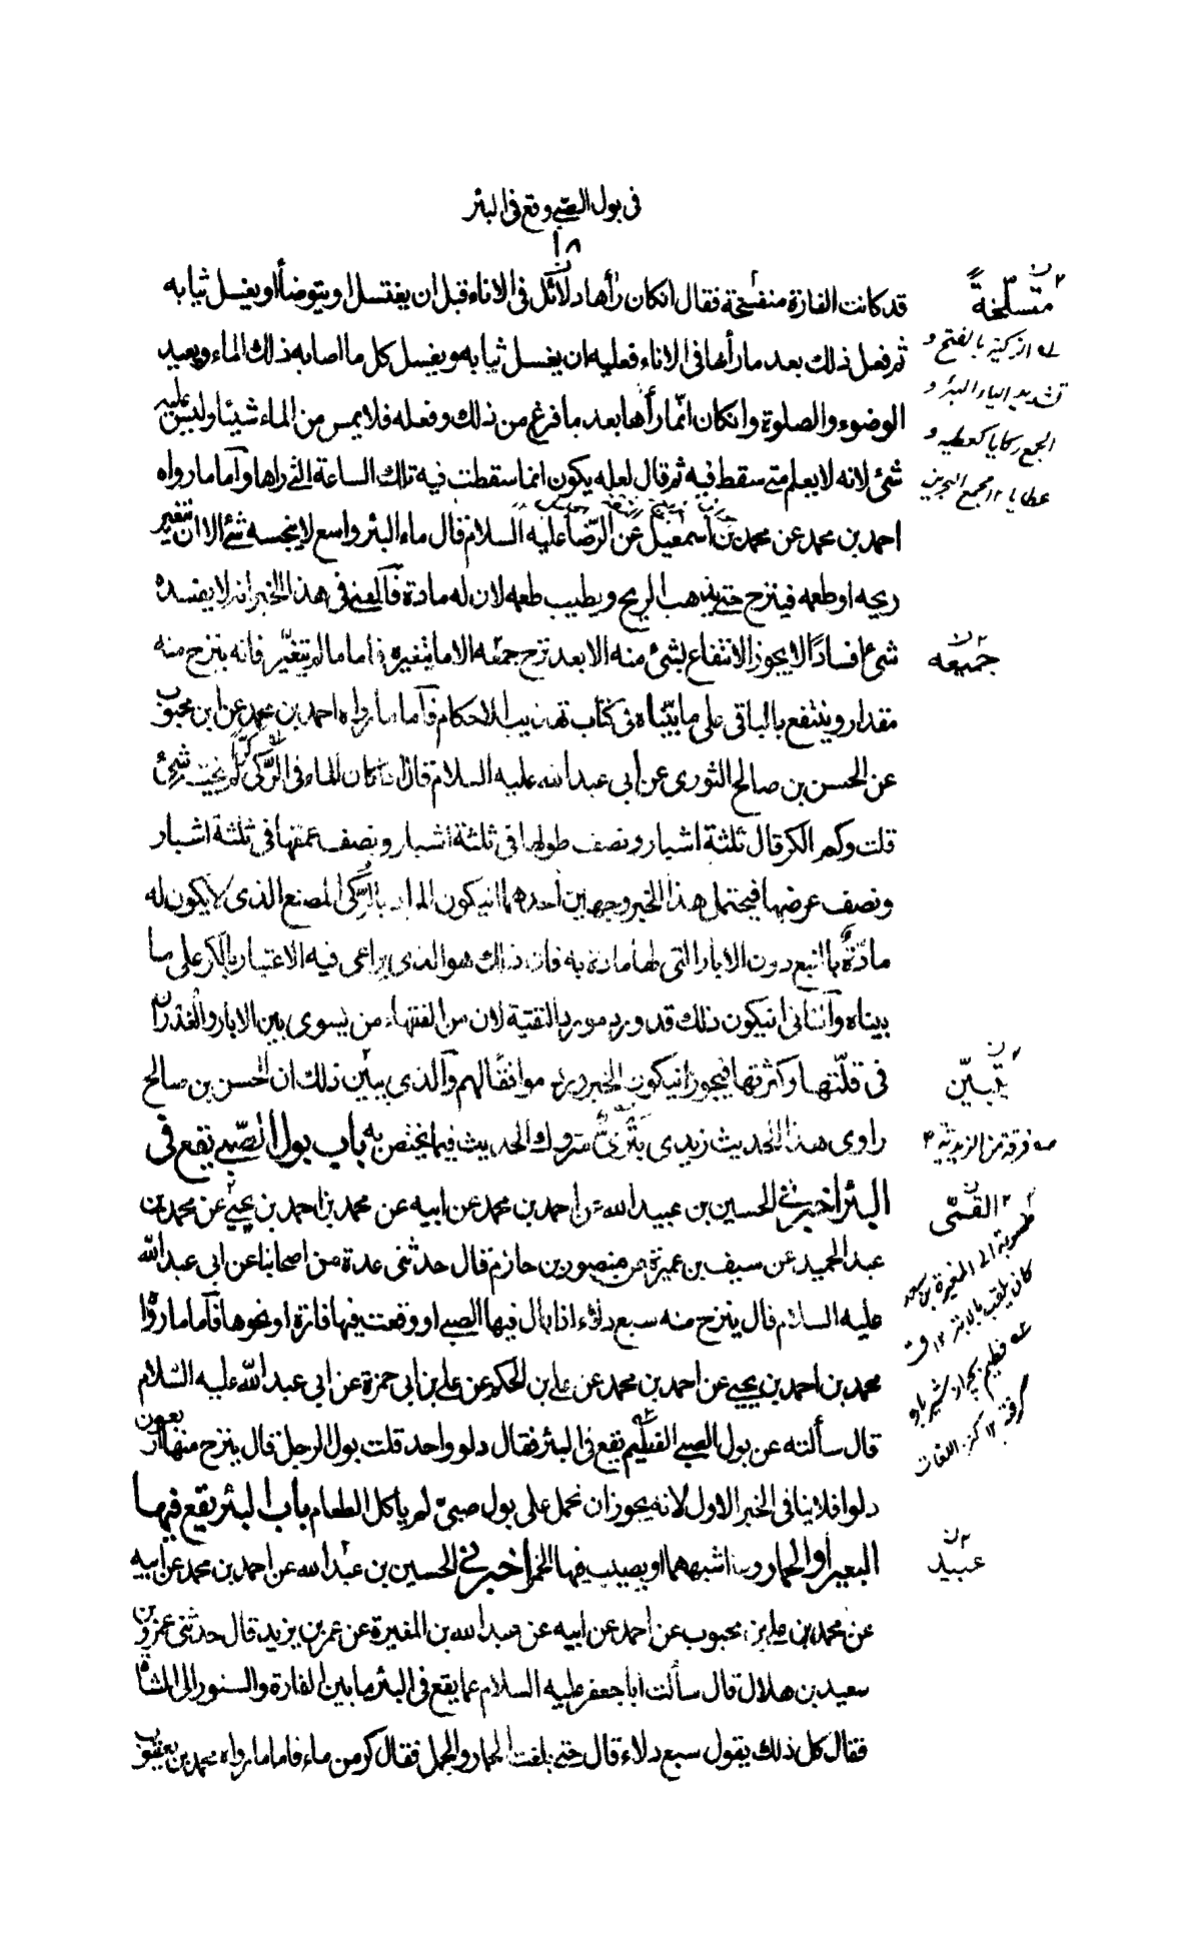 فى بول الصبى وقع فى البئر
١٨
قد كانت الفارة منفسخة فقال ان كان رأها دلائل فى الاناء قبل ان يغتسل او يتوضأ او يغسل ثيابه
ثم فعل ذلك بعد ما رأها فى الاناء فعليه ان يغسل ثيابه ويغسل كل ما اصابه ذلك الماء ويعيد
الوضوء والصلوة وان كان انما رأها بعد ما فرغ من ذلك وفعله فلا يمس من الماء شيئا وليس عليه
شئ لانه لا يعلم متى سقط فيه ثم قال لعله يكون انما سقطت فيه تلك الساعة التى راها وأما ما رواه
احمد بن محمد عن محمد بن اسمعيل عن الرضا عليه السلام قال ماء البئر واسع لا ينجسه شئ الا ان يتغير
ريحه او طعمه فينزح حتى يذهب الريح ويطيب طعمه لان له مادة فالمعنى فى هذا الخبر انه لا يفسده
شئ افسادًا لا يجوز الانتفاع بشئ منه الا بعد نزح جميعه الا ما يتغيره فاما ما لم يتغير فانه ينزح منه
مقدار وينتفع بالباقى على ما بيّناه فى كتاب تهذيب الاحكام فأما ما رواه احمد بن محمد عن ابن محبوب
عن الحسن بن صالح الثورى عن أبى عبد الله عليه السلام قال اذا كان الماء فى الركى كرا لم ينجسه شئ
قلت وكم الكر قال ثلثة اشبار ونصف طولها فى ثلثة اشبار ونصف عمقها فى ثلثة اشبار
ونصف عرضها فيحتمل هذا الخبر وجهين أحدهما ان يكون المراد بالركى المصنع الذى لا يكون له
مادّة بالنبع دون الابار التى لها مادة به فان ذلك هو الذى يراعى فيه الاعتبار بالكر على ما
بيناه والثانى ان يكون ذلك قد ورد مورد التقية لان من الفقهاء من يسوى بين الابار والغدران
فى قلّتها وكثرتها فيجوز ان يكون الخبر ورد موافقًا لهم والذى يبين ذلك ان الحسن بن صالح
راوى هذا الحديث زيدى بترىّ متروك الحديث فيما يختص به باب بول الصبى يقع فى
البئر اخبرنى الحسين بن عبيد الله عن احمد بن محمد عن ابيه عن محمد بن احمد بن يحيى عن محمد بن
عبد الحميد عن سيف بن عميرة عن منصور بن حازم قال حدثنى عدة من اصحابنا عن ابى عبد الله
عليه السلام قال ينزح منه سبع دلاء اذا بال فيها الصبى او وقعت فيها فارة او نحوها فأما ما رواه
محمد بن احمد بن يحيى عن احمد بن محمد عن على بن الحكم عن على بن ابى حمزة عن ابى عبد الله عليه السّلام
قال سألته عن بول الصبى الفطيم يقع فى البئر فقال دلو واحد قلت بول الرجل قال ينزح منها اربعون
دلوا فلا ينافى الخبر الاول لانه يجوز ان نحمل على بول صبىّ لم يأكل الطعام باب البئر يقع فيها
البعير او الحمار وما اشبههما او يصيب فيها الخمر اخبرنى الحسين بن عبد الله عن احمد بن محمد عن ابيه
عن محمد بن على بن محبوب عن احمد عن ابيه عن عبد الله بن المغيرة عن عمر بن يزيد قال حدثنى عمرو بن
سعيد بن هلال قال سألت ابا جعفر عليه السلام عما يقع فى البئر ما بين الفارة والسنور الى الشاة
فقال كل ذلك يقول سبع دلاء قال حتى بلغت الحمار والجمل فقال كر من ماء فاما ما رواه محمد بن يعقوب
متسلّخةً
الركية بالفتح و
تشديد الياء البئر و
الجمع ركايا كعطية و
عطايا ١٢ مجمع البحرين
جميعه
يبيّن
فرقة من الزيدية
القمّى
منسوبة الى المغيرة بن سعد
كان يلقب بالابتر ١٢ ق
كنز اللغات
عبيد